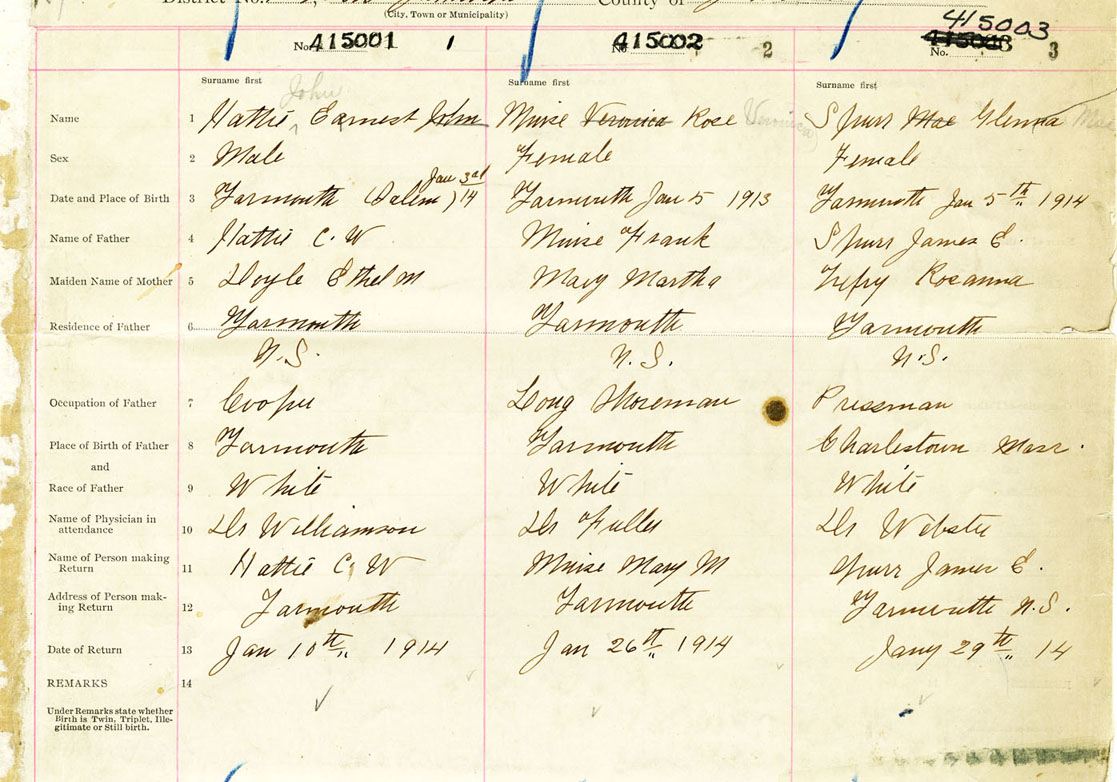 County of
(City, Town or Municipality)
No. 415001 1
No. 415002 2
415003
No. 3
Surname first
Surname first
Surname first
John
Name 1 Hattie Earnest John
Muise Veronica Rose Veronica
Spurr Mae Glenna Mae
Sex 2 Male
Female
Female
Jan 3rd
Date and Place of Birth 3 Yarmouth (Salem) 14
Yarmouth Jan 5 1913
Yarmouth Jan 5th 1914
Name of Father 4 Hattie C. W
Muise Frank
Spurr James E.
Maiden Name of Mother 5 Doyle Ethel M
Mary Martha
Trefry Rosanna
Residence of Father 6 Yarmouth
Yarmouth
Yarmouth
N.S.
N.S.
N.S.
Occupation of Father 7 Cooper
Long Shoreman
Pressman
Place of Birth of Father 8 Yarmouth
Yarmouth
Charlestown Mass.
and
Race of Father 9 White
White
White
Name of Physician in
attendance 10 Dr Williamson
Dr Fuller
Dr Webster
Name of Person making
Return 11 Hattie C. W
Muise Mary M
Spurr James E.
Address of Person mak-
ing Return 12 Yarmouth
Yarmouth
Yarmouth N.S.
Date of Return 13 Jan 10th 1914
Jan 26th 1914
Jany 29th 14
REMARKS 14
Under Remarks state whether
Birth is Twin, Triplet, Ille-
gitimate or Still birth.